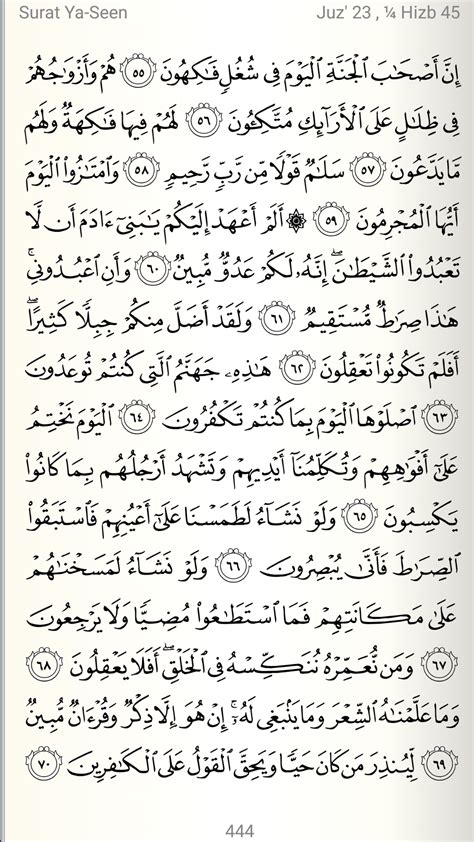 Surat Ya-Seen Juz' 23 , ¼ Hizb 45
إِنَّ أَصْحَٰبَ ٱلْجَنَّةِ ٱلْيَوْمَ فِى شُغُلٍ فَٰكِهُونَ ٥٥ هُمْ وَأَزْوَٰجُهُمْ
فِى ظِلَٰلٍ عَلَى ٱلْأَرَآئِكِ مُتَّكِـُٔونَ ٥٦ لَهُمْ فِيهَا فَٰكِهَةٌ وَلَهُم
مَّا يَدَّعُونَ ٥٧ سَلَٰمٌ قَوْلًا مِّن رَّبٍّ رَّحِيمٍ ٥٨ وَٱمْتَٰزُوا۟ ٱلْيَوْمَ
أَيُّهَا ٱلْمُجْرِمُونَ ٥٩ ۞ أَلَمْ أَعْهَدْ إِلَيْكُمْ يَٰبَنِىٓ ءَادَمَ أَن لَّا
تَعْبُدُوا۟ ٱلشَّيْطَٰنَ ۖ إِنَّهُۥ لَكُمْ عَدُوٌّ مُّبِينٌ ٦٠ وَأَنِ ٱعْبُدُونِى ۚ
هَٰذَا صِرَٰطٌ مُّسْتَقِيمٌ ٦١ وَلَقَدْ أَضَلَّ مِنكُمْ جِبِلًّا كَثِيرًا ۖ
أَفَلَمْ تَكُونُوا۟ تَعْقِلُونَ ٦٢ هَٰذِهِۦ جَهَنَّمُ ٱلَّتِى كُنتُمْ تُوعَدُونَ
٦٣ ٱصْلَوْهَا ٱلْيَوْمَ بِمَا كُنتُمْ تَكْفُرُونَ ٦٤ ٱلْيَوْمَ نَخْتِمُ
عَلَىٰٓ أَفْوَٰهِهِمْ وَتُكَلِّمُنَآ أَيْدِيهِمْ وَتَشْهَدُ أَرْجُلُهُم بِمَا كَانُوا۟
يَكْسِبُونَ ٦٥ وَلَوْ نَشَآءُ لَطَمَسْنَا عَلَىٰٓ أَعْيُنِهِمْ فَٱسْتَبَقُوا۟
ٱلصِّرَٰطَ فَأَنَّىٰ يُبْصِرُونَ ٦٦ وَلَوْ نَشَآءُ لَمَسَخْنَٰهُمْ
عَلَىٰ مَكَانَتِهِمْ فَمَا ٱسْتَطَٰعُوا۟ مُضِيًّا وَلَا يَرْجِعُونَ
٦٧ وَمَن نُّعَمِّرْهُ نُنَكِّسْهُ فِى ٱلْخَلْقِ ۖ أَفَلَا يَعْقِلُونَ ٦٨
وَمَا عَلَّمْنَٰهُ ٱلشِّعْرَ وَمَا يَنۢبَغِى لَهُۥٓ ۚ إِنْ هُوَ إِلَّا ذِكْرٌ وَقُرْءَانٌ مُّبِينٌ
٦٩ لِّيُنذِرَ مَن كَانَ حَيًّا وَيَحِقَّ ٱلْقَوْلُ عَلَى ٱلْكَٰفِرِينَ ٧٠
444